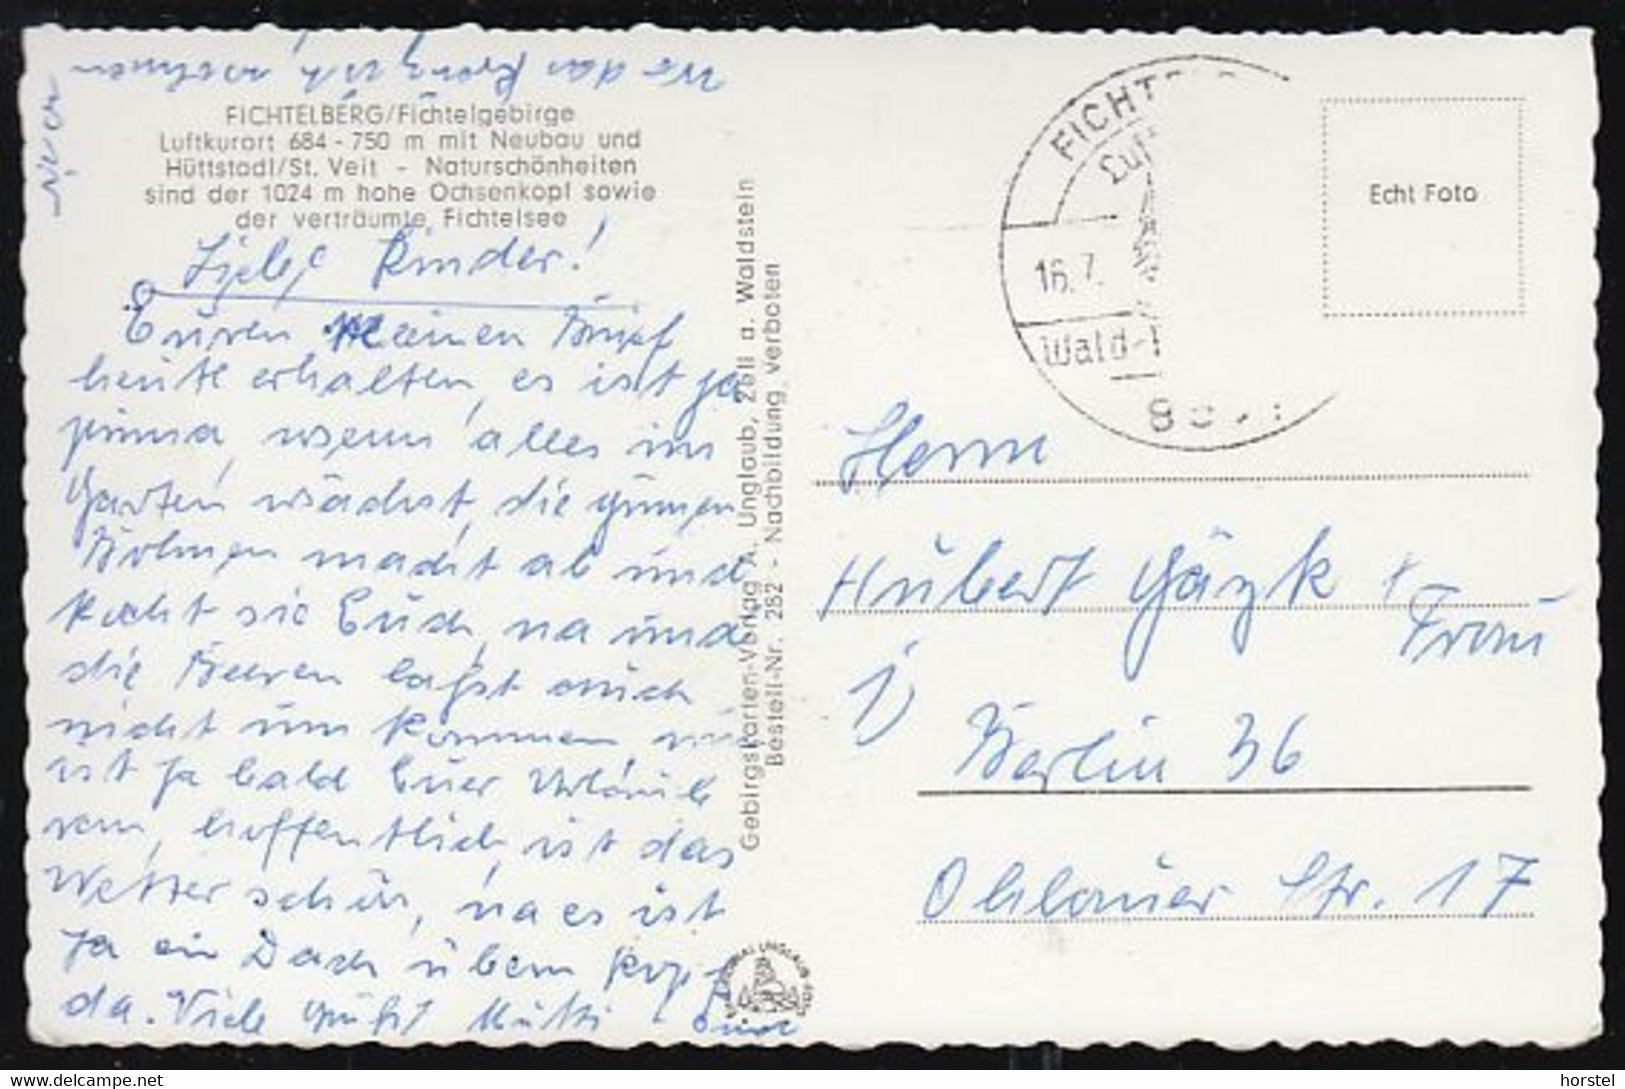 FICHTELBERG/Fichtelgebirge
Luftkurort 684 - 750 m mit Neubau und
Hüttstadl/St. Veit - Naturschönheiten
sind der 1024 m hohe Ochsenkopf sowie
der verträumte Fichtelsee
Liebe Kinder!
Euren kleinen Brief
heute erhalten, es ist ja
prima, wenn alles im
Garten wächst, die grünen
Bohnen macht ab und
kocht sie Euch, na und
die Beeren laßt auch
nicht um kommen, nu
ist ja bald Euer Urlaub
ran, hoffentlich ist das
Wetter schön, na es ist
ja ein Dach übern Kopf
da. Viele Grüße Mutti
Gebirgskarten-Verlag A. Unglaub, Zell a. Waldstein
Bestell-Nr. 282 - Nachbildung verboten
16.7.
Wald-
Echt Foto
Herrn
Hubert Gäzk +
Frau
1) Berlin 36
Ohlauer Str. 17
horstel